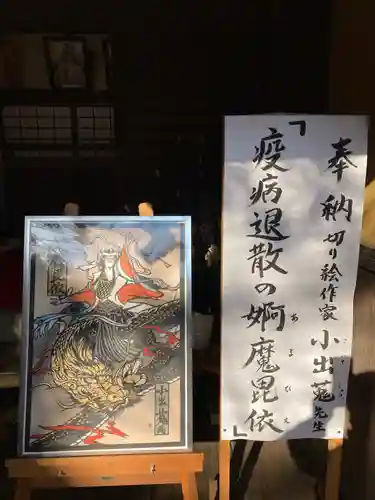 奉納 切り絵作家 小出蒐先生
「疫病退散の婀魔毘依」
あまびえ
小出蒐